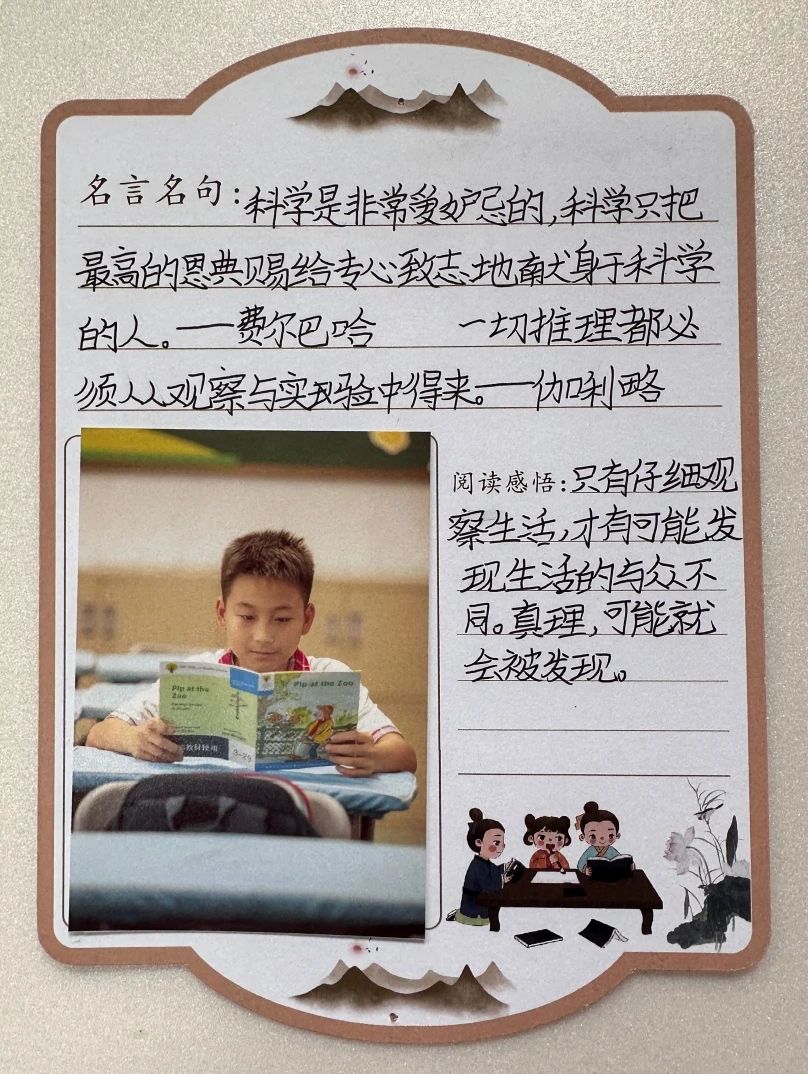 名言名句:科学是非常爱妒忌的,科学只把
最高的恩典赐给专心致志地献身于科学
的人。——费尔巴哈 一切推理都必
须从观察与实验中得来。——伽利略
阅读感悟:只有仔细观
察生活,才有可能发
现生活的与众不
同。真理,可能就
会被发现。
Pip at the Zoo
Pip at the
Zoo
教材使用
3-29